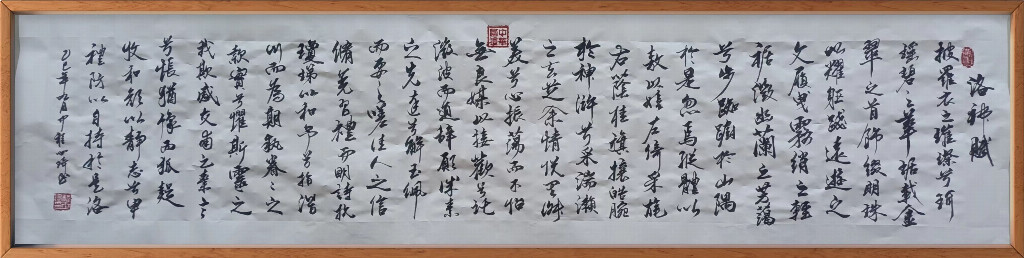 洛神賦
披羅衣之璀璨兮珥
瑤碧之華琚戴金
翠之首飾綴明珠
以耀軀踐遠遊之
文履曳霧綃之輕
裾微幽蘭之芳藹
兮步踟躕於山隅
於是忽焉縱體以
遨以嬉左倚采旄
右蔭桂旗攘皓腕
於神滸兮采湍瀨
之玄芝余情悅其淑
美兮心振蕩而不怡
無良媒以接歡兮託
微波而通辭願誠素
之先達兮解玉佩
而要之嗟佳人之信
脩羌習禮而明詩抗
瓊珶以和予兮指潛
淵而為期執眷眷之
款實兮懼斯靈之
我欺感交甫之棄言
兮悵猶豫而狐疑
收和顏以靜志兮申
禮防以自持於是洛